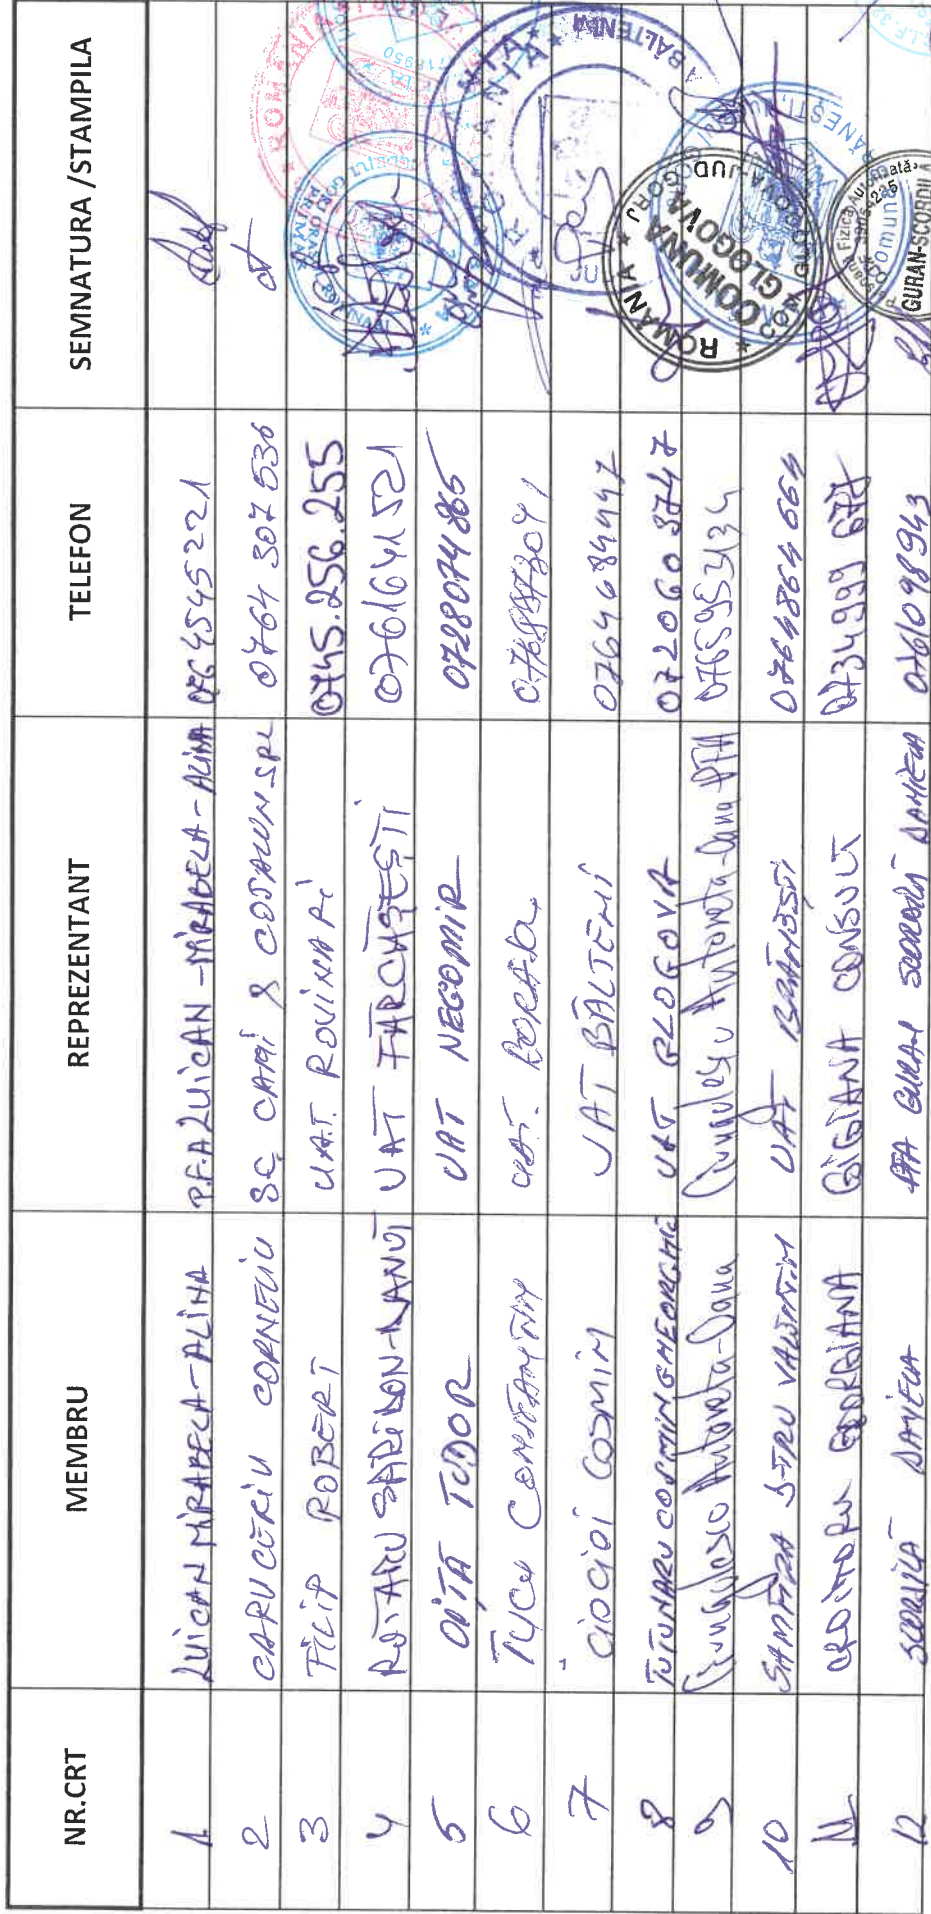 NR.CRT MEMBRU REPREZENTANT TELEFON SEMNATURA /STAMPILA
1 LUICAN MIRABELA-ALINA P.F.A LUICAN-MIRABELA-ALINA 0764545221
2 CARUCERIU CORNELIU SC CAMI & COSAUN SRL 0764 307 536
3 FILIP ROBERT U.A.T. ROVINARI 0745.256.255
4 ROTARU SPIRIDON-LANUT UAT FARCASESTI 0761641521
5 ODTA TUDOR UAT NEGOMIR 0728074865
6 TUCU CONSTANTIN UAT
7 CIOCIOI COSMIN UAT BALTENI 0764684947
8 TUTUNARU COSMIN GHEORGHE UAT GLOGOVA 0720603747
9 Ciungulescu Antoneta-Oana Ciungulescu Antoneta-Oana PFA 0765953134
10 VALENTIN UAT 0764864664
11 CROITORU GEORGIANA GIGIANA CONSULT 0734999677
12 SCORDILA DANIELA PFA GURAN SCORDILA DANIELA 0761098943
ROMÂNIA * JUD. GORJ
COMUNA GLOGOVA
GURAN-SCORDILA